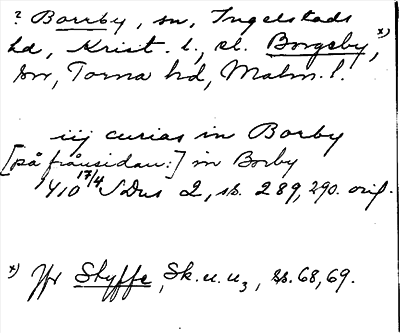 ? Borrby, sn, Ingelstads
hd, Krist. l., el. Borgeby, *)
sn, Torna hd, Malm. l.
iij curias in Borby
[på frånsidan:] in Borby
1410 17/4 SDns 2, sb. 289, 290. orig.
*) Jfr Styffe, Sk. u. u3, ss. 68, 69.